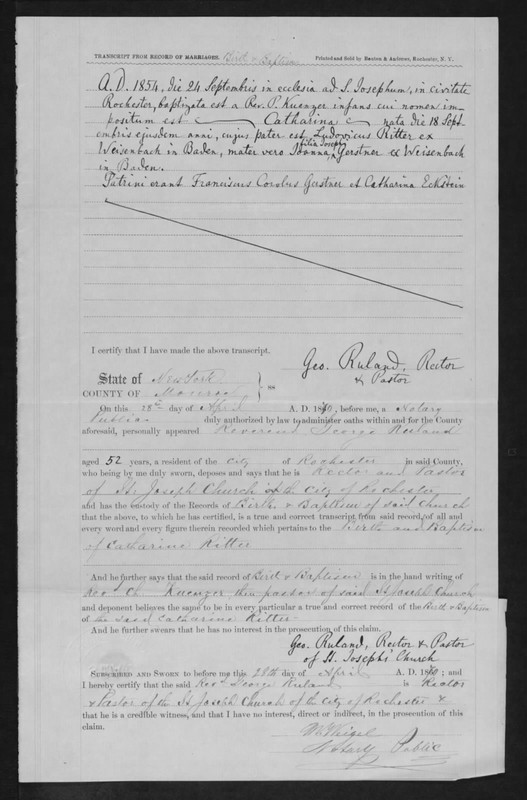 TRANSCRIPT FROM RECORD OF MARRIAGES. Birth & Baptism Printed and Sold by Benton & Andrews, Rochester, N. Y.
A.D. 1854, die 24 Septembris in ecclesia ad S. Josephum, in civitate
Rochester, baptizata est a Rev. P. Kuenzer infans cui nomen im-
positum est Catharina nata die 18 Sept-
embris ejusdem anni, cujus pater est Ludovicus Ritter ex
Weisenbach in Baden, mater vero Joanna, filia Joseph Gerstner ex Weisenbach
in Baden.
Patrini erant Franciscus Carolus Gerstner et Catharina Eckstein
I certify that I have made the above transcript.
Geo. Ruland, Rector
& Pastor
State of New York
COUNTY OF Monroe } ss
On this 28th day of April A. D. 18, before me, a Notary
Public duly authorized by law to administer oaths within and for the County
aforesaid, personally appeared Reverend George Ruland
aged 52 years, a resident of the City of Rochester in said County,
who being by me duly sworn, deposes and says that he is Rector and Pastor
of St. Joseph Church in the City of Rochester
and has the custody of the Records of Birth & Baptism of said Church
that the above, to which he has certified, is a true and correct transcript from said record, of all and
every word and every figure therein recorded which pertains to the Birth and Baptism
of Catharine Ritter
And he further says that the said record of Birth & Baptism is in the hand writing of
Rev Ch. Kuenzer then pastor of said St Joseph Church
and deponent believes the same to be in every particular a true and correct record of the Birth & Baptism
of the said Catharine Ritter
And he further swears that he has no interest in the prosecution of this claim.
Geo. Ruland, Rector & Pastor
of St. Josephs Church
SUBSCRIBED AND SWORN to before me this 28th day of April A. D. 18 ; and
I hereby certify that the said Revd George Ruland is Rector
& Pastor of the St Joseph Church of the City of Rochester &
that he is a credible witness, and that I have no interest, direct or indirect, in the prosecution of this
claim.
Notary Public